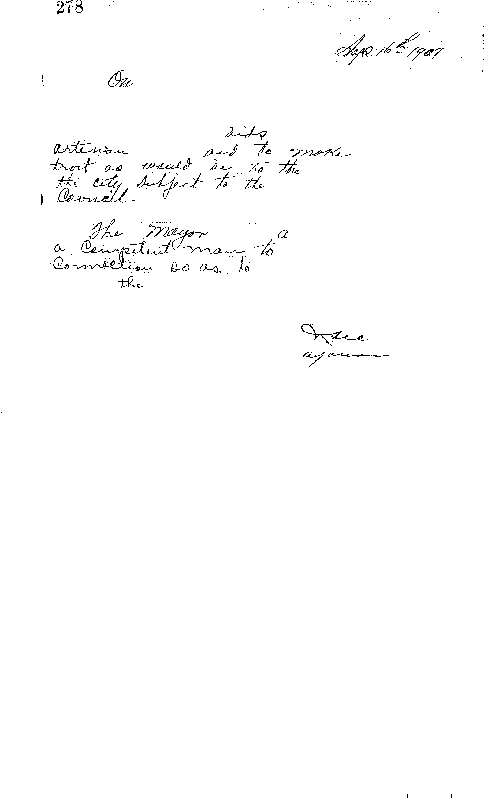 278
Sep. 16th 1907
On
bids
artesian and to make
as would be to the
the city subject to the
Council.
The Mayor a
a Competent man to
Connection so as to
the